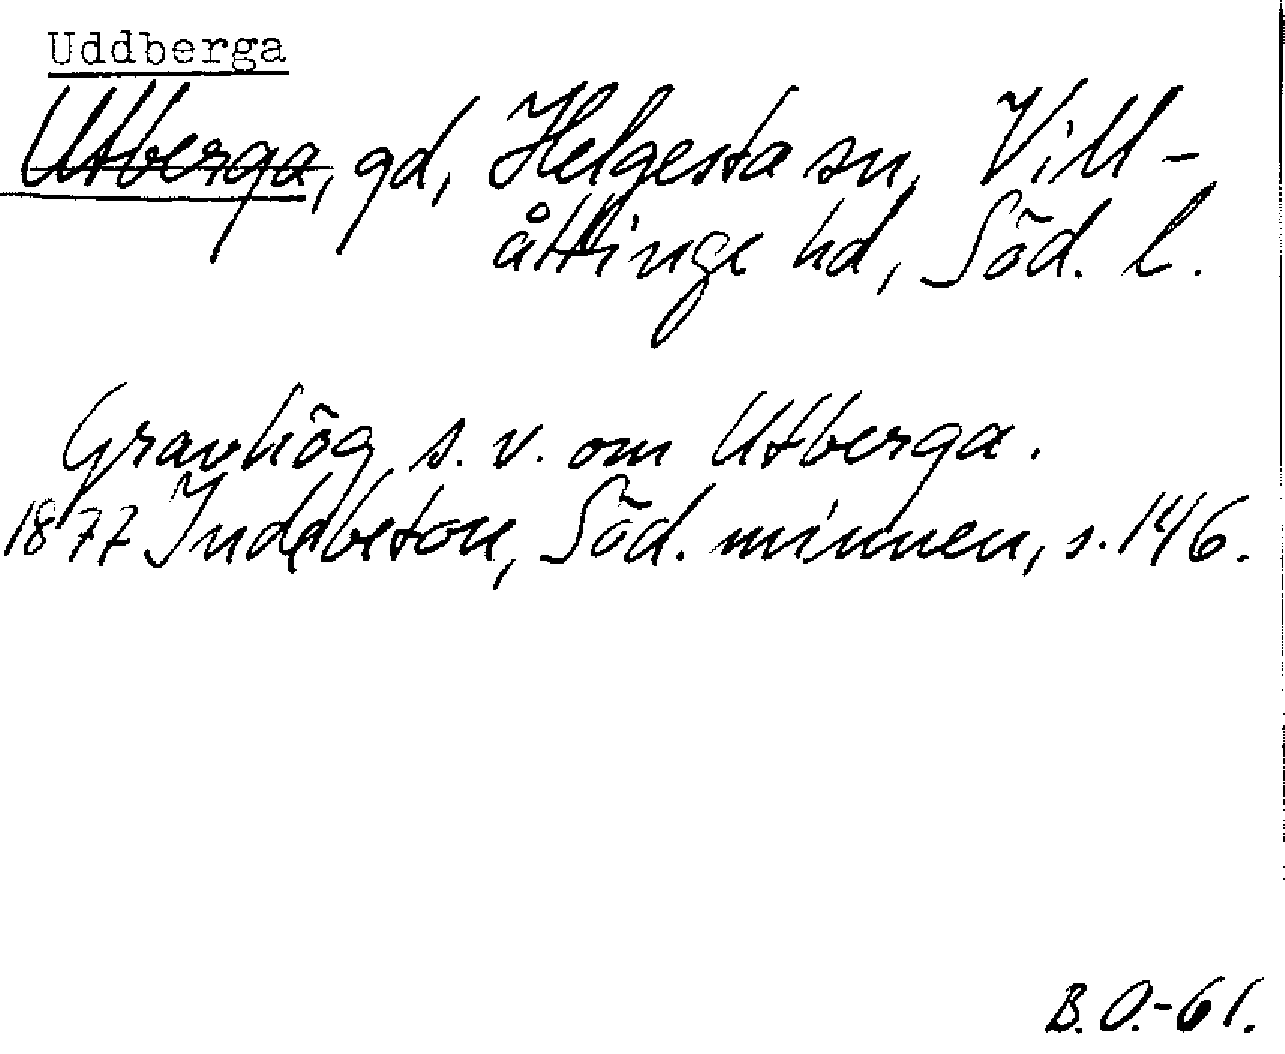 Uddberga
Utberga, gd, Helgesta sn, Vill-
åttinge hd, Söd. l.
Gravhög s.v. om Utberga.
1877 Indebetou, Söd. minnen, s. 146.
B.O.-61.